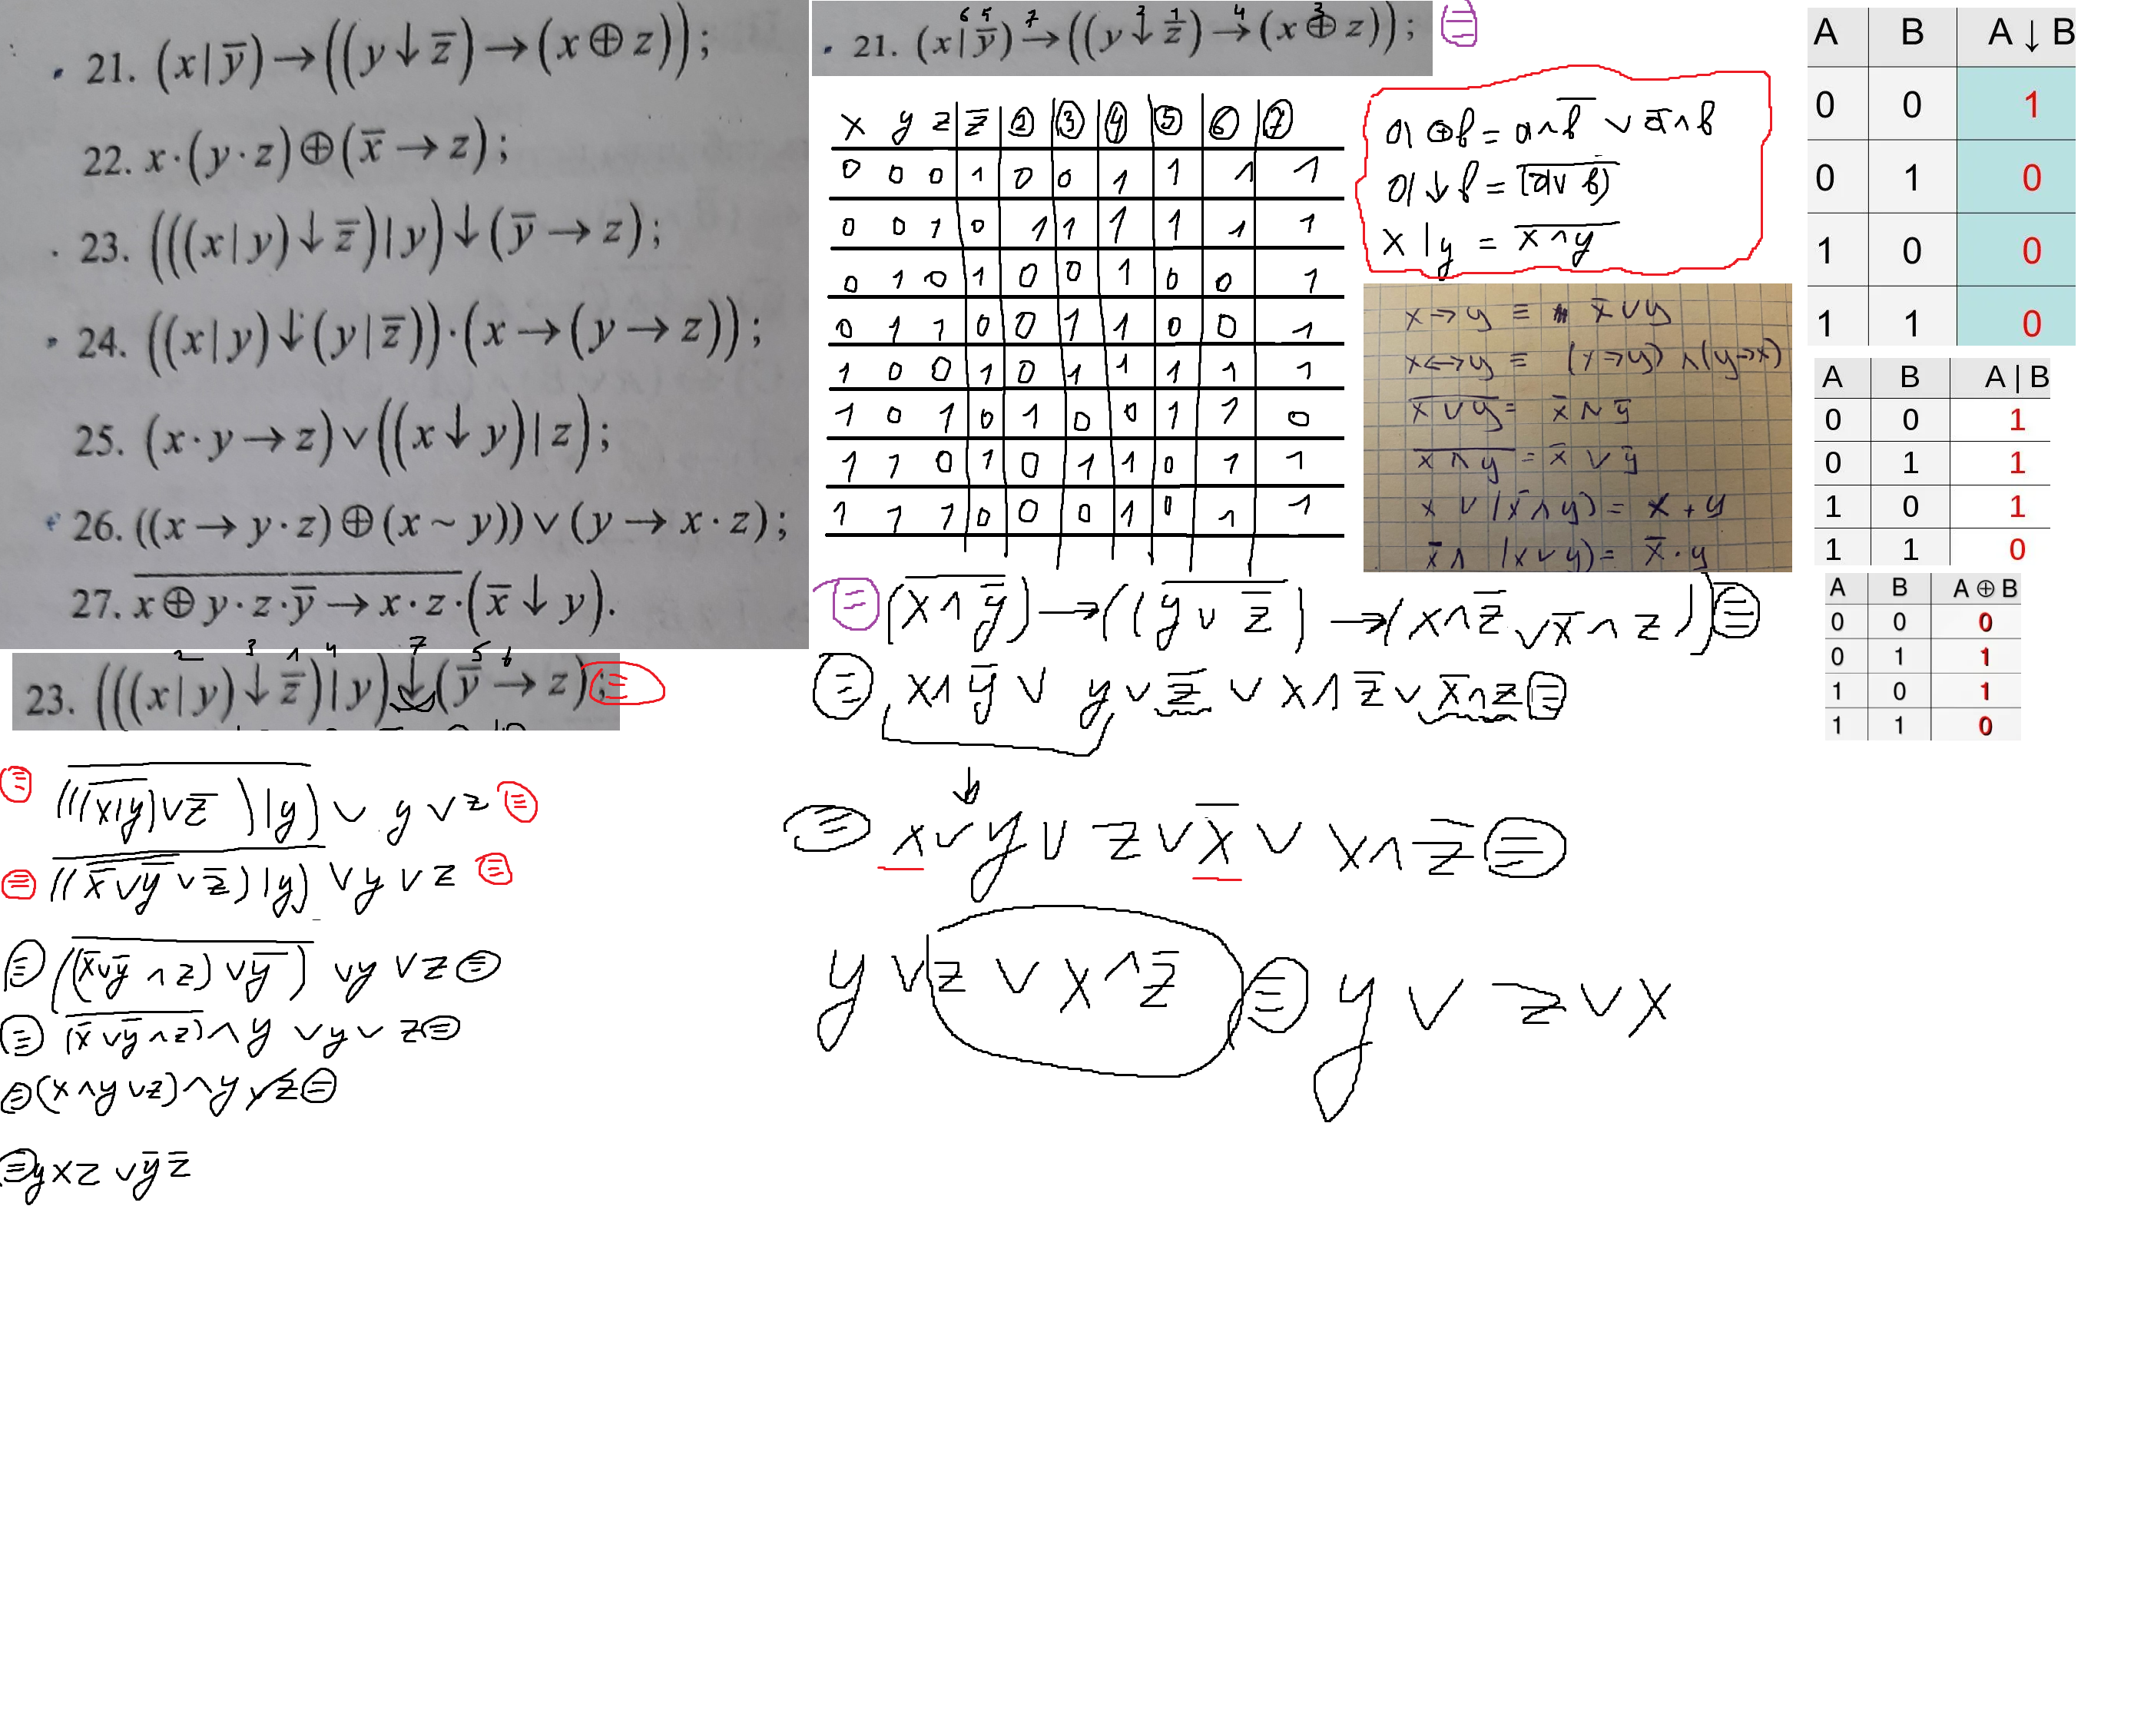 21. (x|y̅)→((y↓z̅)→(x⊕z));
22. x·(y·z)⊕(x̅→z);
23. (((x|y)↓z̅)|y)↓(y̅→z);
24. ((x|y)↓(y|z̅))·(x→(y→z));
25. (x·y→z)∨((x↓y)|z);
26. ((x→y·z)⊕(x~y))∨(y→x·z);
27. \overline{x⊕y·z·y̅→x·z}·(x̅↓y).
2 3 1 4 7 5 6
23. (((x|y)↓z̅)|y)↓(y̅→z); ≡
≡ \overline{(((\overline{x|y})∨z̅)|y)} ∨ y ∨ z ≡
≡ \overline{((\overline{x̅∨y̅}∨z̅)|y)} ∨ y ∨ z ≡
≡ \overline{((x̅∨y̅∧z)∨y̅)} ∨ y ∨ z ≡
≡ \overline{(x̅∨y̅∧z)}∧y ∨ y ∨ z ≡
≡ (x∧y∨z)∧y∨z ≡
≡ yxz ∨ y̅z̅
6 5 7 2 1 4 3
21. (x|y̅)→((y↓z̅)→(x⊕z)); ≡
x y z z̅ ② ③ ④ ⑤ ⑥ ⑦
0 0 0 1 0 0 1 1 1 1
0 0 1 0 1 1 1 1 1 1
0 1 0 1 0 0 1 0 0 1
0 1 1 0 0 1 1 0 0 1
1 0 0 1 0 1 1 1 1 1
1 0 1 0 1 0 0 1 1 0
1 1 0 1 0 1 1 0 1 1
1 1 1 0 0 0 1 0 1 1
a⊕b = a∧b̅ ∨ a̅∧b
a↓b = \overline{(a∨b)}
x|y = \overline{x∧y}
x→y ≡ x̅∨y
x↔y ≡ (x→y)∧(y→x)
\overline{x∨y} = x̅∧y̅
\overline{x∧y} = x̅∨y̅
x∨(x̅∧y) = x+y
x̅∧(x∨y) = x̅·y
≡ (\overline{x∧y̅})→((\overline{y∨z̅})→(x∧z̅∨x̅∧z)) ≡
≡ x∧y̅ ∨ y∨z̅ ∨ x∧z̅ ∨ x̅∧z ≡
↓
≡ x∨y∨z∨x̅∨x∧z̅ ≡
y∨z∨x∧z̅ ≡ y∨z∨x
A B A↓B
0 0 1
0 1 0
1 0 0
1 1 0
A B A|B
0 0 1
0 1 1
1 0 1
1 1 0
A B A⊕B
0 0 0
0 1 1
1 0 1
1 1 0